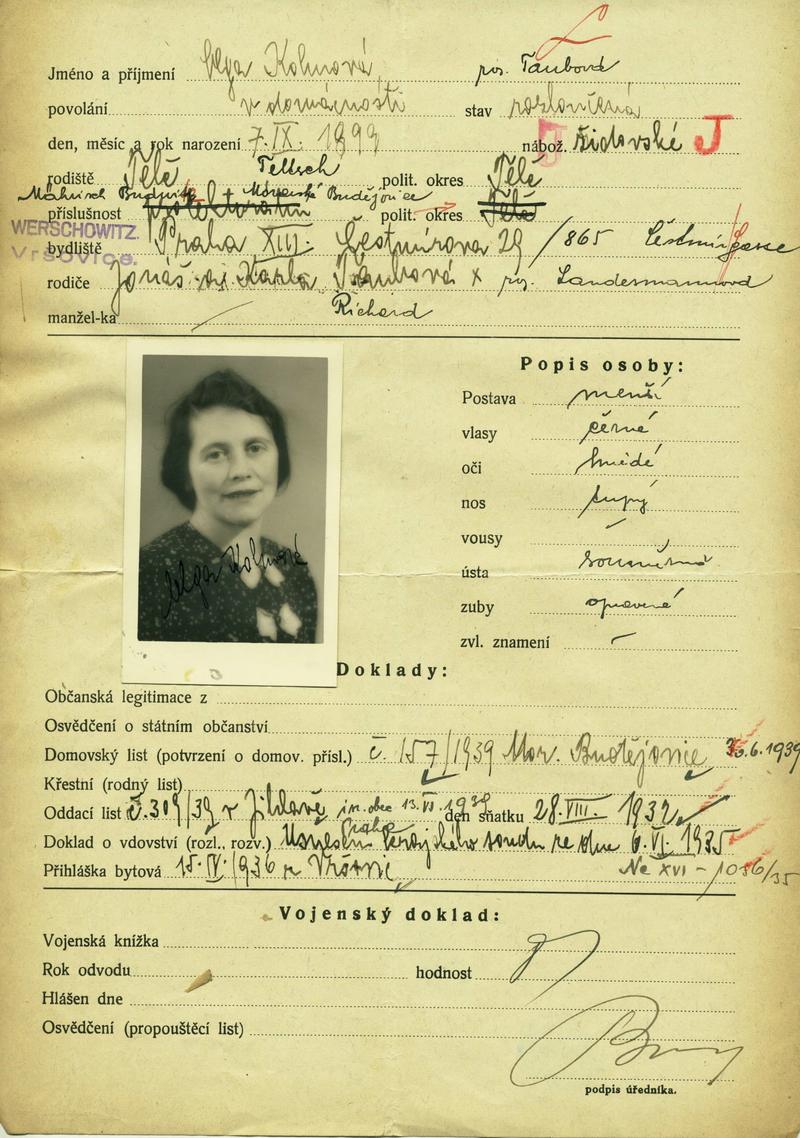 Jméno a příjmení Olga Kohnová roz. Taubová
povolání v domácnosti stav rozloučená
den, měsíc a rok narození 7. IX. 1899 nábož. židovské J
Teltsch
rodiště Telč polit. okres Telč
Mährisch Budwitz Moravské Budějovice
příslušnost polit. okres Telč
WERSCHOWITZ.
Vršovice.
bydliště Praha XIII. Čestmírova 29 / 865 Čestmírgasse
rodiče Jonáš a Karla Taubová roz. Landesmannová
manžel-ka Richard
Popis osoby:
Postava menší
vlasy černé
oči hnědé
nos tupý
vousy
ústa souměrná
zuby opravené
zvl. znamení
Olga Kohnová
Doklady:
Občanská legitimace z
Osvědčení o státním občanství
Domovský list (potvrzení o domov. přísl.) č. 157/1939 Mor. Budějovice 6. 1939
Křestní (rodný list)
Oddací list č. 309/39 v Jihlavě 13. VI. 1939 den sňatku 28. VIII. 1932
Praha
Doklad o vdovství (rozl., rozv.) Usnesení krajského soudu ze dne 6. VI. 1935
Přihláška bytová 15. IV. 1936 Nc XVI - 1086/35
Vojenský doklad:
Vojenská knížka
Rok odvodu hodnost
Hlášen dne
Osvědčení (propouštěcí list)
podpis úředníka.